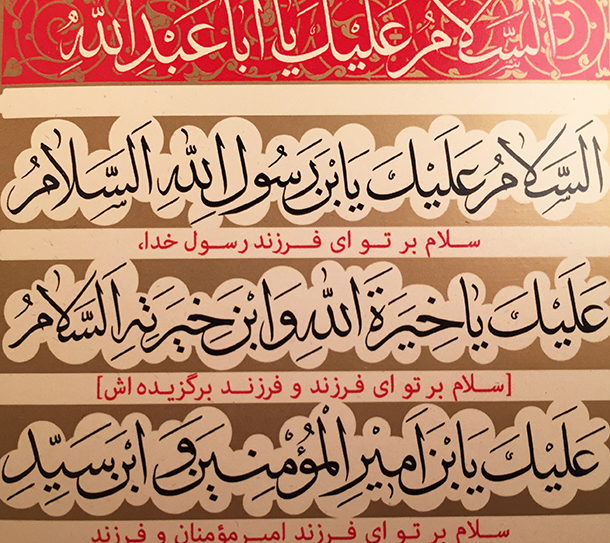 اَلسَّلامُ عَلَيْكَ يا اَبا عَبْدِاللهِ
اَلسَّلامُ عَلَيْكَ يَابْنَ رَسُولِ اللهِ اَلسَّلامُ
سلام بر تو ای فرزند رسول خدا،
عَلَيْكَ يا خِيَرَةَ اللهِ وَابْنَ خِيَرَتِهِ اَلسَّلامُ
[سلام بر تو ای فرزند و فرزند برگزیده اش]
عَلَيْكَ يَابْنَ اَميرِ الْمُؤْمِنينَ وَ ابْنَ سَيِّدِ
سلام بر تو ای فرزند امیرمؤمنان و فرزند